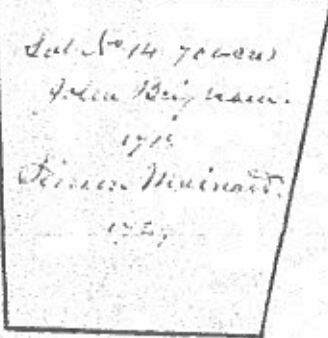 Lot No 14 70 acres
John Brigham.
171
Simon Mainard.
17